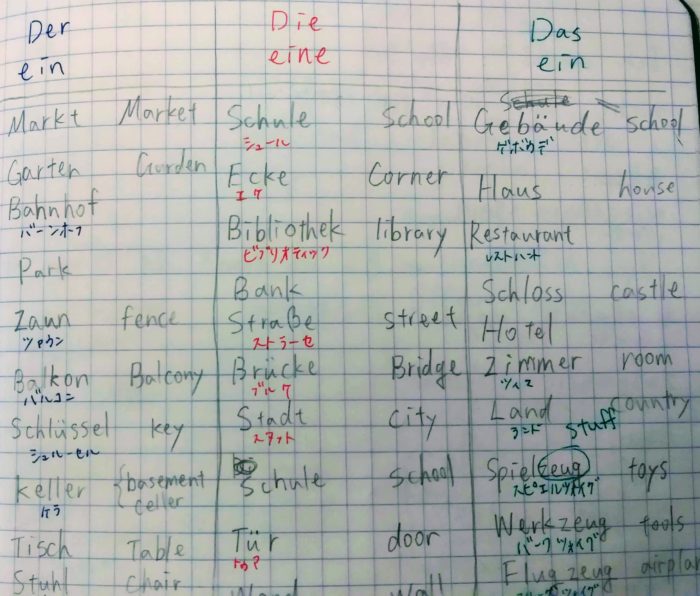 Der Die Das
ein eine ein
Schule
Markt Market Schule School Gebäude school
シュール ゲボウデ
Garten Gurden Ecke Corner Haus house
エク
Bahnhof Bibliothek library Restaurant
バーンホーフ ビブリオティック レストハント
Park Bank Schloss castle
Zaun fence Straße street Hotel
ツァウン ストラーセ
Balkon Balcony Brücke Bridge Zimmer room
バルコン ブルク ツィマ
Schlüssel key Stadt city Land country
シュルーセル スタット ランド stuff
Keller basement Schule school Spielzeug toys
ケラ celler スピエルツォイグ
Werkzeug tools
Tisch Table Tür door バークツォイグ
トゥア
Stuhl chair Flugzeug airplan